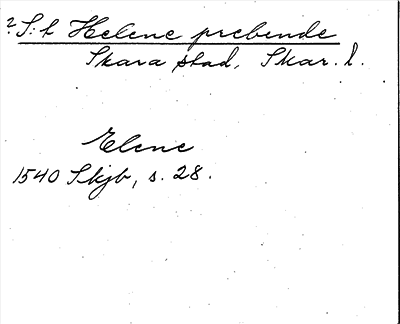 ? S:t Helene prebende
Skara stad, Skar. l.
Elene
1540 Skjb, s. 28.